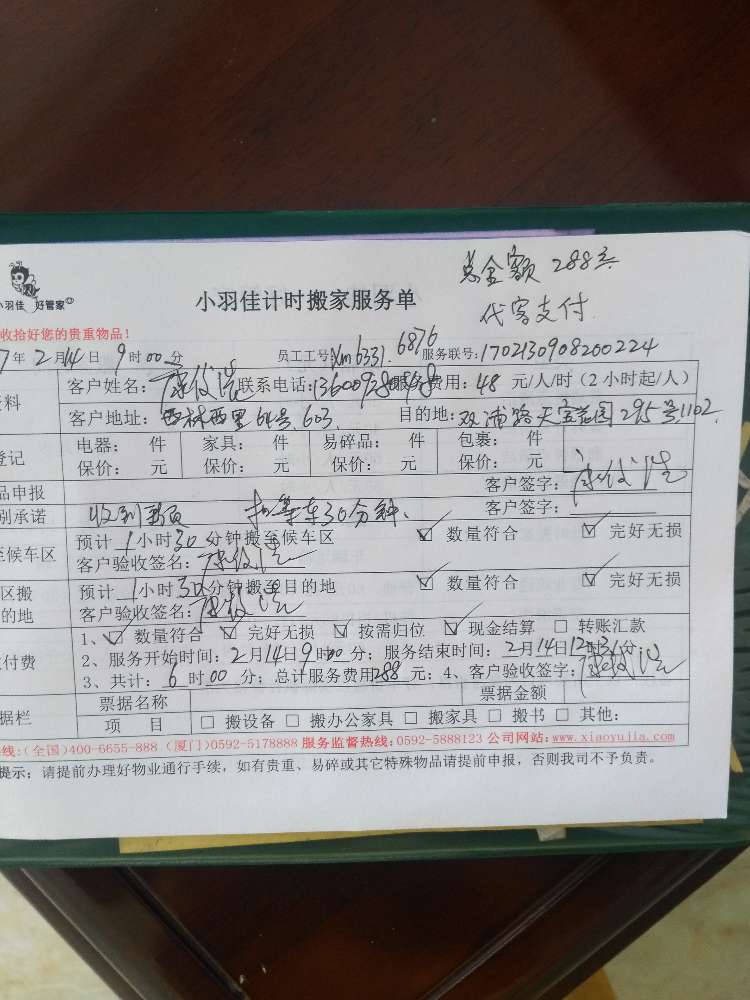 总金额 288元
代客支付
小羽佳 好管家
小羽佳计时搬家服务单
收拾好您的贵重物品!
7年2月14日9时00分 员工工号:Xm6331.6876 服务联号:1702130908200224
料 客户姓名: 联系电话: 服务费用:48元/人/时(2小时起/人)
客户地址:西林西里64号603. 目的地:双浦路天宝花园295号1102.
登记 电器: 件 家具: 件 易碎品: 件 包裹: 件
保价: 元 保价: 元 保价: 元 保价: 元
品申报 客户签字:
别承诺 收到 等车30分钟. 客户签字:
至候车区 预计1小时30分钟搬至候车区 ☑ 数量符合 ☑ 完好无损
客户验收签名:
区搬 预计1小时30分钟搬至目的地 ☑ 数量符合 ☑ 完好无损
的地 客户验收签名:
付费 1、☑ 数量符合 ☑ 完好无损 ☑ 按需归位 ☑ 现金结算 □ 转账汇款
2、服务开始时间:2月14日9时00分;服务结束时间:2月14日12时3分
3、共计:6时00分;总计服务费用288元;4、客户验收签字:
据栏 票据名称 票据金额
项 目 □ 搬设备 □ 搬办公家具 □ 搬家具 □ 搬书 □ 其他:
线:(全国)400-6655-888 (厦门)0592-5178888 服务监督热线:0592-5888123 公司网站:www.xiaoyujia.com
提示:请提前办理好物业通行手续,如有贵重、易碎或其它特殊物品请提前申报,否则我司不予负责。